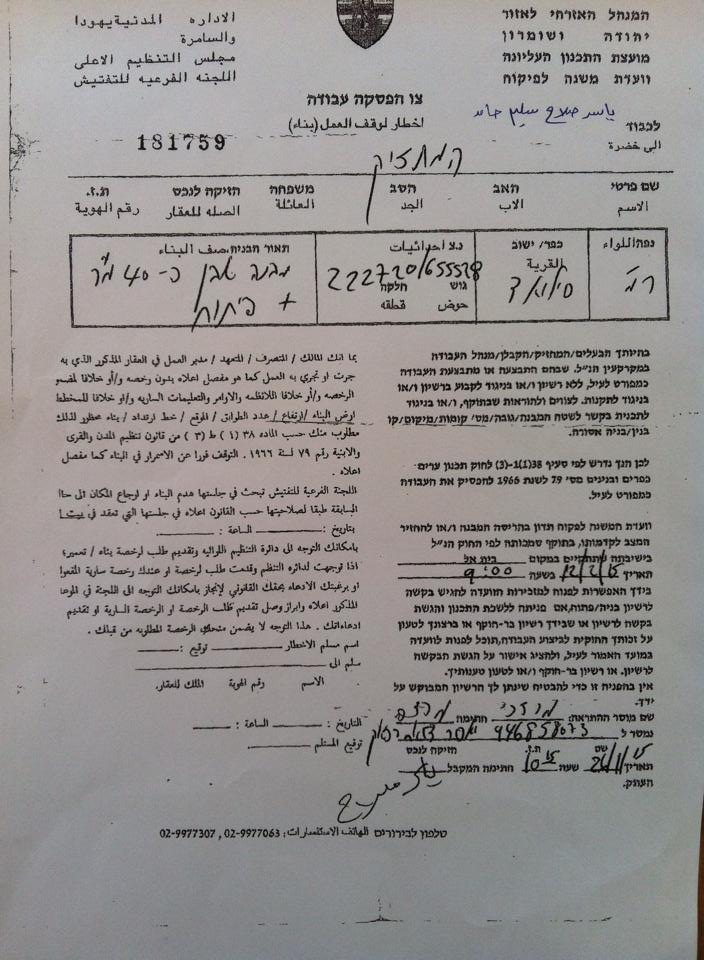 המנהל האזרחי לאזור
יהודה ושומרון
מועצת התכנון העליונה
וועדת משנה לפיקוח
الاداره المدنية يهودا
والسامرة
مجلس التنظيم الاعلى
اللجنه الفرعيه للتفتيش
צו הפסקה עבודה
اخطار لوقف العمل (بناء)
181759
לכבוד ياسر صلاح سليم حامد
الى حضرة
המחזיק
שם פרטי האב הסב משפחה הזיקה לנכס ת.ז.
الاسم الاب الجد العائلة الصله للعقار رقم الهوية
נפה/מחוז
רמ'
כפר/ ישוב
القرية
סילואד
נ.צ احداثيات
222720/655528
גוש חלקה
حوض قطعه
תאור הבניה, صف البناء
מבנה אבן כ-40 מ"ר
+ פיתוח
בהיותך הבעלים/המחזיק/הקבלן/מנהל העבודה
במקרקעין הנ"ל. שבהם התבצעה או מתבצעת העבודה
כמפורט לעיל, ללא רשיון ו/או בניגוד לקבוע ברשיון ו/או
בניגוד לתקנות. לצווים ולהוראות שבתוקף, ו/או בניגוד
לתכנית בקשר לשטח המבנה/גובה/מס' קומות/מיקום/קו
בנין/בניה אסורה.
לכן הנך נדרש לפי סעיף 38(1)-(3) לחוק תכנון ערים
כפרים ובנינים מס' 79 לשנת 1966 להפסיק את העבודה
כמפורט לעיל.
וועדת המשנה לפקוח תדון בהריסת המבנה ו/או להחזיר
המצב לקדמותו, בתוקף סמכותה לפי החוק הנ"ל
בישיבתה שתתקיים במקום בית אל
תאריך 12/2/15 בשעה 9:00
בידך האפשרות לפנות למזכירות הוועדה להגיש בקשה
לרשיון בניה/פתוח, אם פניתה ללשכת התכנון והגשת
בקשה לרשיון או שבידך רשיון בר-חוקף או ברצונך לטעון
על זכותך החוקית לביצוע העבודה, תוכל לפנות לוועדה
במועד האמור לעיל, ולהציג אישור על הגשת הבקשה
לרשיון. או רשיון בר-חוקף ו/או לטעון טענותיך.
אין בהפניה זו כדי להבטיח שינתן לך הרשיון המבוקש על
ידך.
שם מוסר ההתראה: מרדכי חתימה
נמסר ל 946858073
שם ת.ז. הזיקה לנכס
תאריך 26/1/15 שעה 10:15 חתימה המקבל
העתק.
بما انك المالك / المتصرف / المتعهد / مدير العمل في العقار المذكور الذي به
جرت او تجري به العمل كما هو مفصل اعلاه بدون رخصه و/أو خلافا لمضمو
الرخصه و/أو خلافا للانظمه والاوامر والتعليمات الساريه و/او خلافا للمخطط
لوض البناء /ارتفاع/ عدد الطوابق / الموقع / خط ارتداد / بناء محظور لذلك
مطلوب منك حسب الماده ٣٨ (١) ط (٣) من قانون تنظيم المدن والقرى
والابنية رقم ٧٩ لسنة ١٩٦٦. التوقف فورا عن الاستمرار في البناء كما مفصل
اعلاه.
اللجنة الفرعية للتفتيش تبحث في جلستها هدم البناء او لوجاع المكان الى حتا
السابقة طبقا لصلاحيتها حسب القانون اعلاه في جلستها التي تعقد في
بتاريخ: الساعة:
بامكانك التوجه الى دائرة التنظيم اللوائيه وتقديم طلب لرخصة بناء / تعمير؛
اذا توجهت لدائره التنظم وقدمت طلب لرخصة او عندك رخصة سارية المفعوا
او برغبتك الادعاء بحقك القانوني لإنجاز بامكانك التوجه الى اللجنة في الموعا
المذكور اعلاه وابراز وصل تقديم طلب الرخصة او الرخصة السارية او تقديم
ادعاءاتك. هذا التوجه لا يضمن منحك الرخصة المطلوبه من قبلك.
اسم مسلم الاخطار توقيع:
سلم الى
الاسم رقم الهوية الملك للعقار.
التاريخ: الساعة:
توقيع المستلم
טלפון לבירורים الهاتف الاستفسارات: 02-9977063, 02-9977307